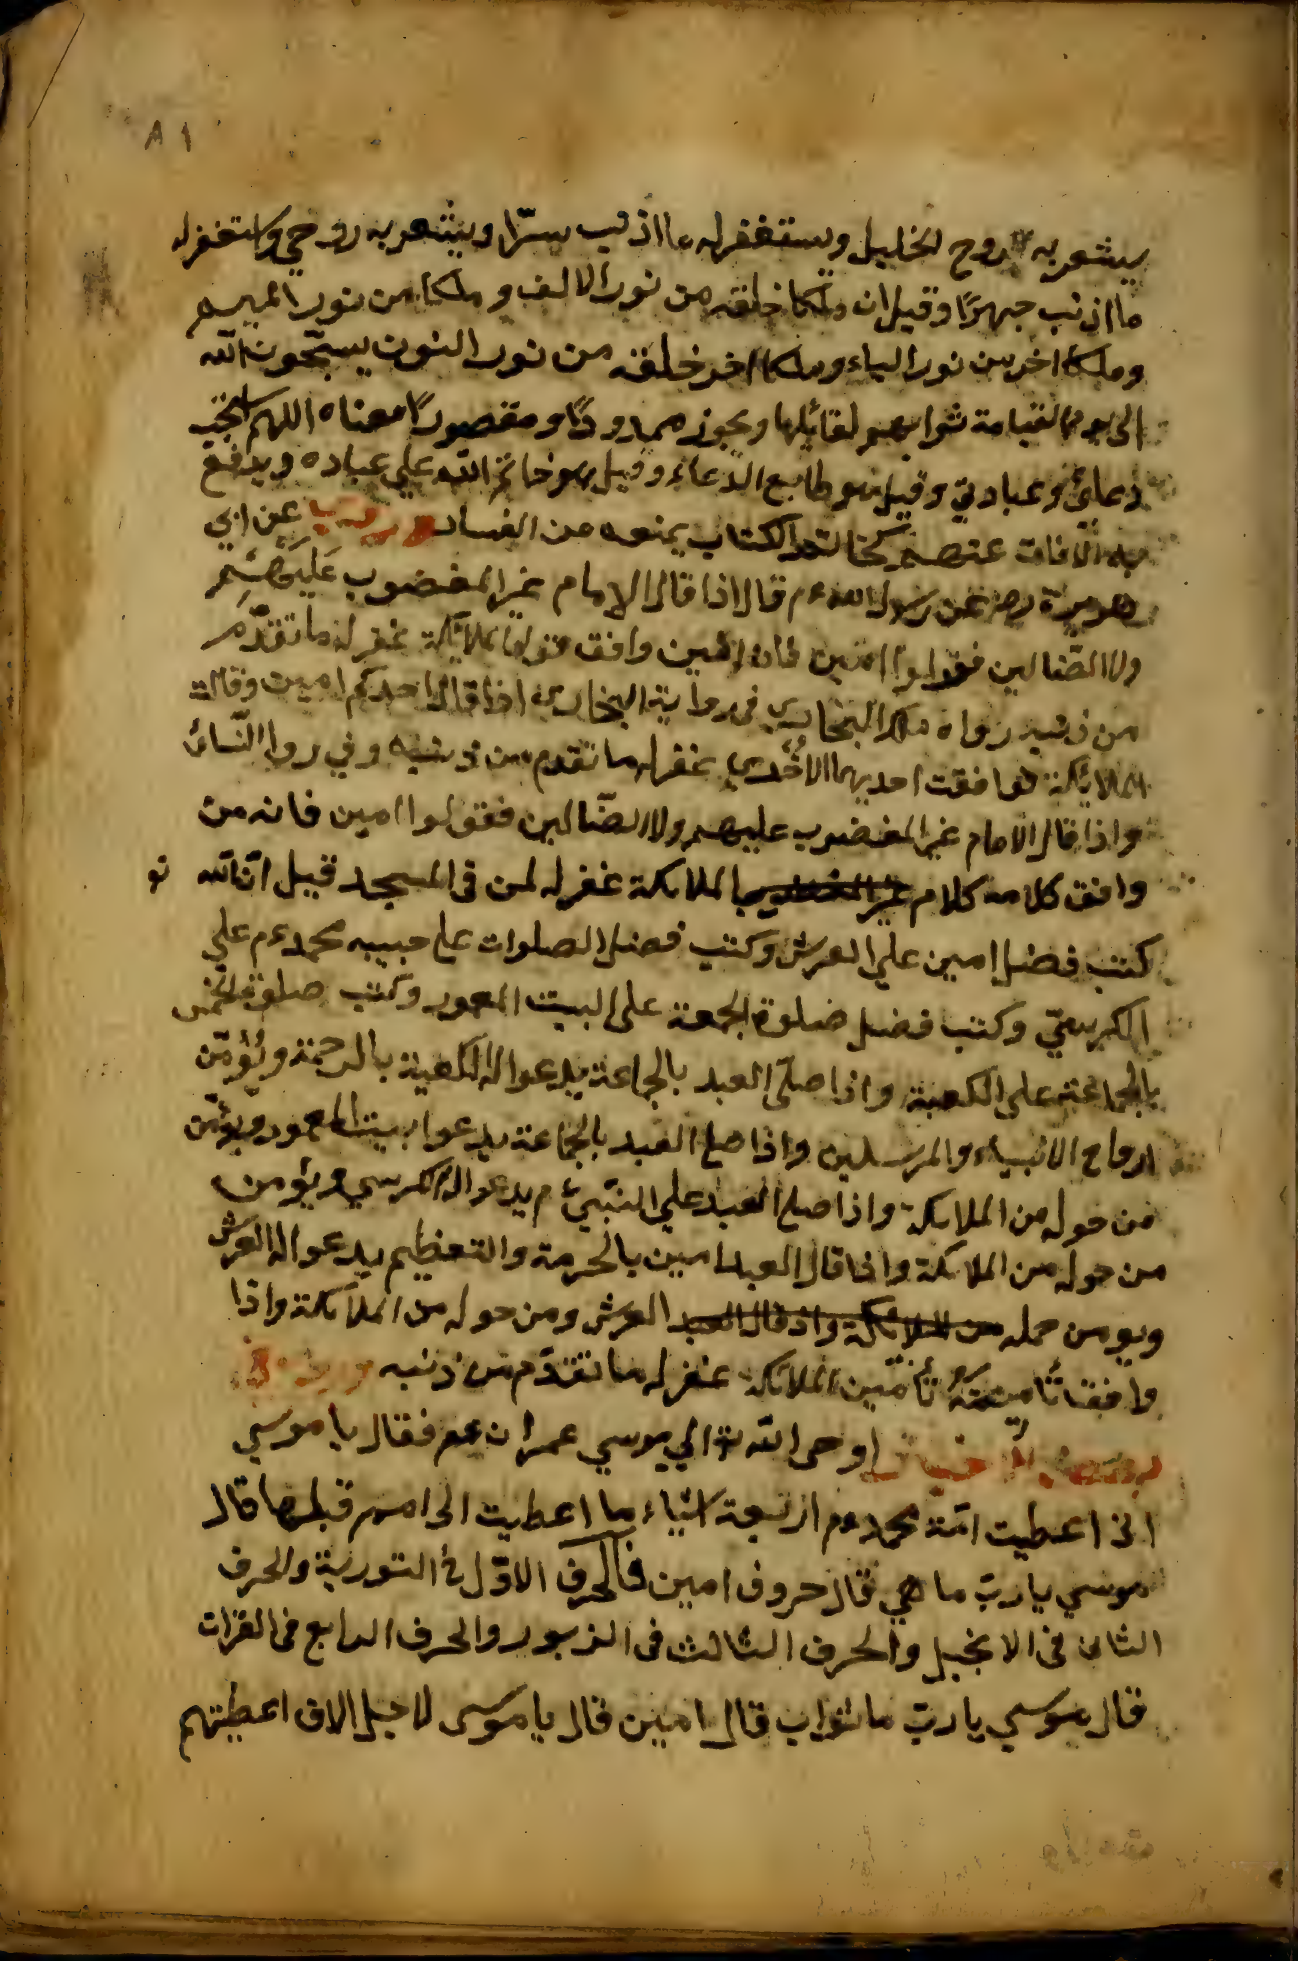 ٨١
يشعر به روح الخليل ويستغفر له ما اذنب سرّا ويشعر به روحي واستغفر له
ما اذنب جهرًا وقيل ان ملكا خلقه من نور الالف وملكا من نور الميم
وملكا اخر من نور الياء وملكا اخر خلقه من نور النون يسبّحون الله
الى يوم القيامة ثوابهم لقائلها ويجوز ممدودًا ومقصورًا معناه اللهم استجب
دعائي وعبادتي وقيل هو طابع الدّعاء وقيل هو خاتم الله علي عباده ويدفع
به الافات عنهم كخاتم الكتاب يمنعه من الفساد عن ابي
هريرة رضـ عن رسول الله ءم قال اذا قال الامام غير المغضوب عَلَيهِم
ولا الضّالين فقولوا امين فان امين وافق قول الملائكة غفر له ما تقدّم
من ذنبه رواه البخاري في رواية البخاري اذا قال احدكم امين وقالت
الملائكة فوافقت احديهما الاُخْرى غفر له ما تقدم من ذنبه وفي روا النّسائ
واذا قال الامام غير المغضوب عليهم ولا الضّالين فقولوا امين فانه من
وافق كلامه كلام الملائكة غفر له لمن فى المسجد قيل انّ الله تو
كتب فضل امين علي العرش وكتب فضل الصلوات على حبيبه محمد ءم علي
الكرسيّ وكتب فضل صلوة الجمعة على البيت المعمور وكتب صلوة الخمس
بالجماعة على الكعبة واذا صلّى العبد بالجماعة يدعوا له الكعبة بالرحمة ويُؤمّن
ارواح الانبياء والمرسلين واذا صلى العبد بالجماعة يدعوا بيت المعمور ويؤمّن
من حوله من الملائكة واذا صلى العبد علي النّبيّ ءم يدعوا له الكرسي ويؤمن
من حوله من الملائكة واذا قال العبد امين بالحرمة والتعظيم يدعوا له العرش
ويومن حمله من الملائكة واذ قال العبد العرش ومن حوله من الملائكة واذا
وافق تأمينه تأمين الملائكة غفر له ما تقدّم من ذنبه
اوحى الله تو الي موسي عمران ءم فقال يا موسي
انى اعطيت امّة محمد ءم اربعة اشياء ما اعطيت الى امم قبلها قال
موسي يا ربّ ما هي قال حروف امين فالحرف الاوّل في التورية والحرف
الثانى فى الانجيل والحرف الثالث فى الزبور والحرف الرابع فى القرات
قال موسي يا ربّ ما ثواب قال امين قال يا موسى لاجل الاف اعطيتهم